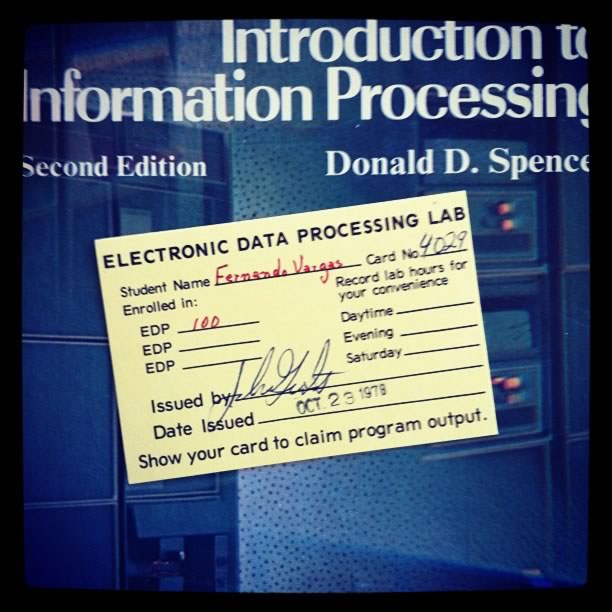 Introduction to
Information Processing
Second Edition
Donald D. Spence
ELECTRONIC DATA PROCESSING LAB
Student Name Fernando Vargas Card No. 4029
Enrolled in:
Record lab hours for
your convenience
EDP 100
EDP
EDP
Daytime
Evening
Saturday
Issued by
Date Issued OCT. 23 1978
Show your card to claim program output.